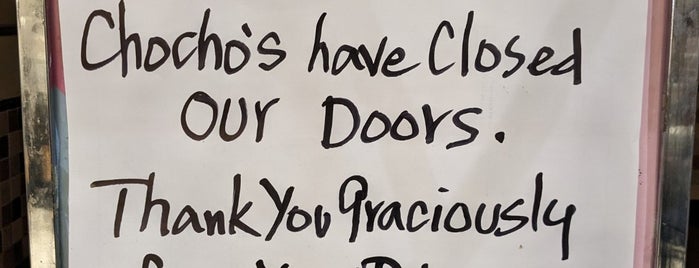 Chocho's have Closed
our Doors.
Thank You Graciously